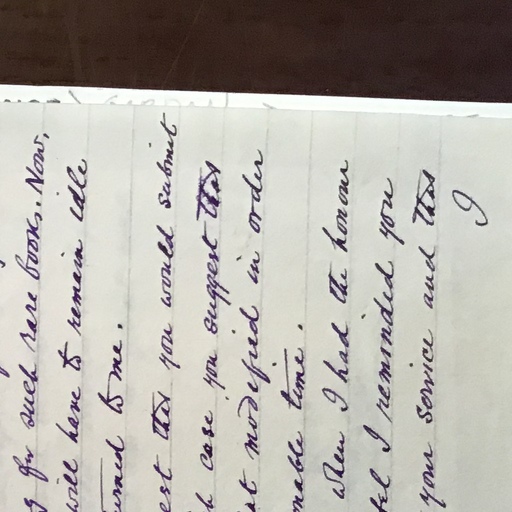 for such rare books. Now,
will have to remain idle
to me.
that you would submit
case you suggest that
modified in order
time.
when I had the honour
I reminded you
your service and that
I